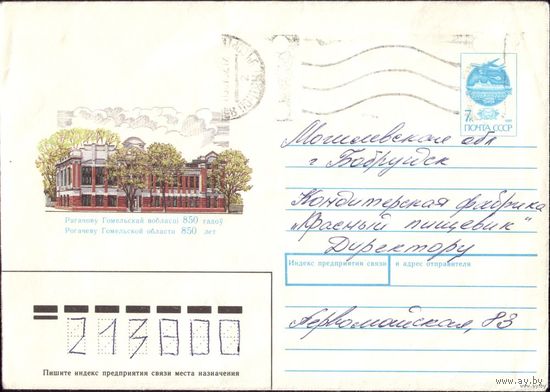 7к
ПОЧТА СССР
Могилевская обл
г Бобруйск
Кондитерская фабрика
"Красный пищевик"
Директору
Рагачову Гомельскай вобласці 850 гадоў
Рогачеву Гомельской области 850 лет
Индекс предприятия связи и адрес отправителя
Первомайская, 83
213800
Пишите индекс предприятия связи места назначения
www.ay.by